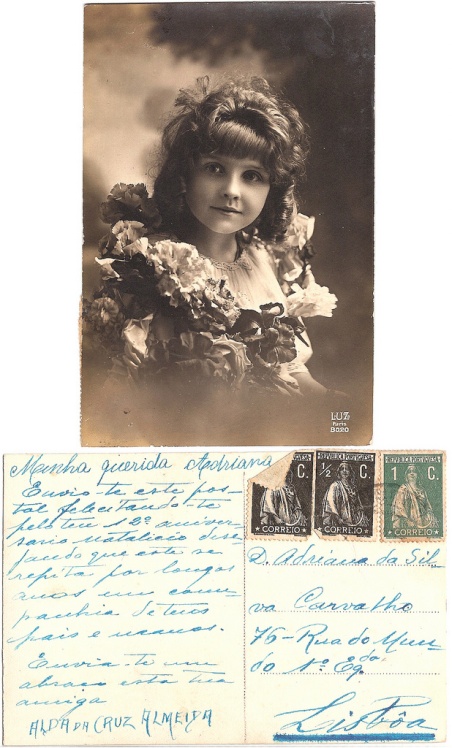 LUZ
Paris
8020
Minha querida Adriana
Envio-te este pos-
tal felicitando-te
pelo teu 12º aniver-
sario natalicio dese-
jando que este se
repita por longos
anos em com-
panhia de teus
pais e manos.
Envia-te um
abraço esta tua
amiga
ALDA DA CRUZ ALMEIDA
C.
CORREIO
REPUBLICA PORTUGUESA
½ C.
CORREIO
REPUBLICA PORTUGUESA
1 C.
CORREIO
D. Adriana da Sil-
va Carvalho
76-Rua do Mun-
do 1º Eq.do
Lisbôa